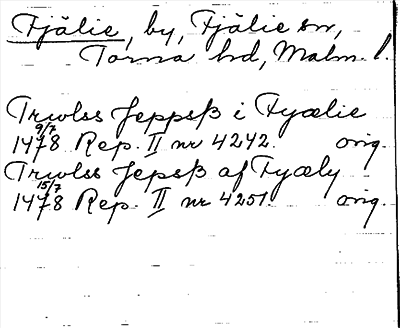 Fjälie, by, Fjälie sn,
Torna hd, Malm. l.
Trwlss Jeppsß i Fyælie
9/7
1478 Rep. II nr 4242. orig.
Trwlss Jepsß af Fyæly
15/7
1478 Rep. II nr 4251. orig.